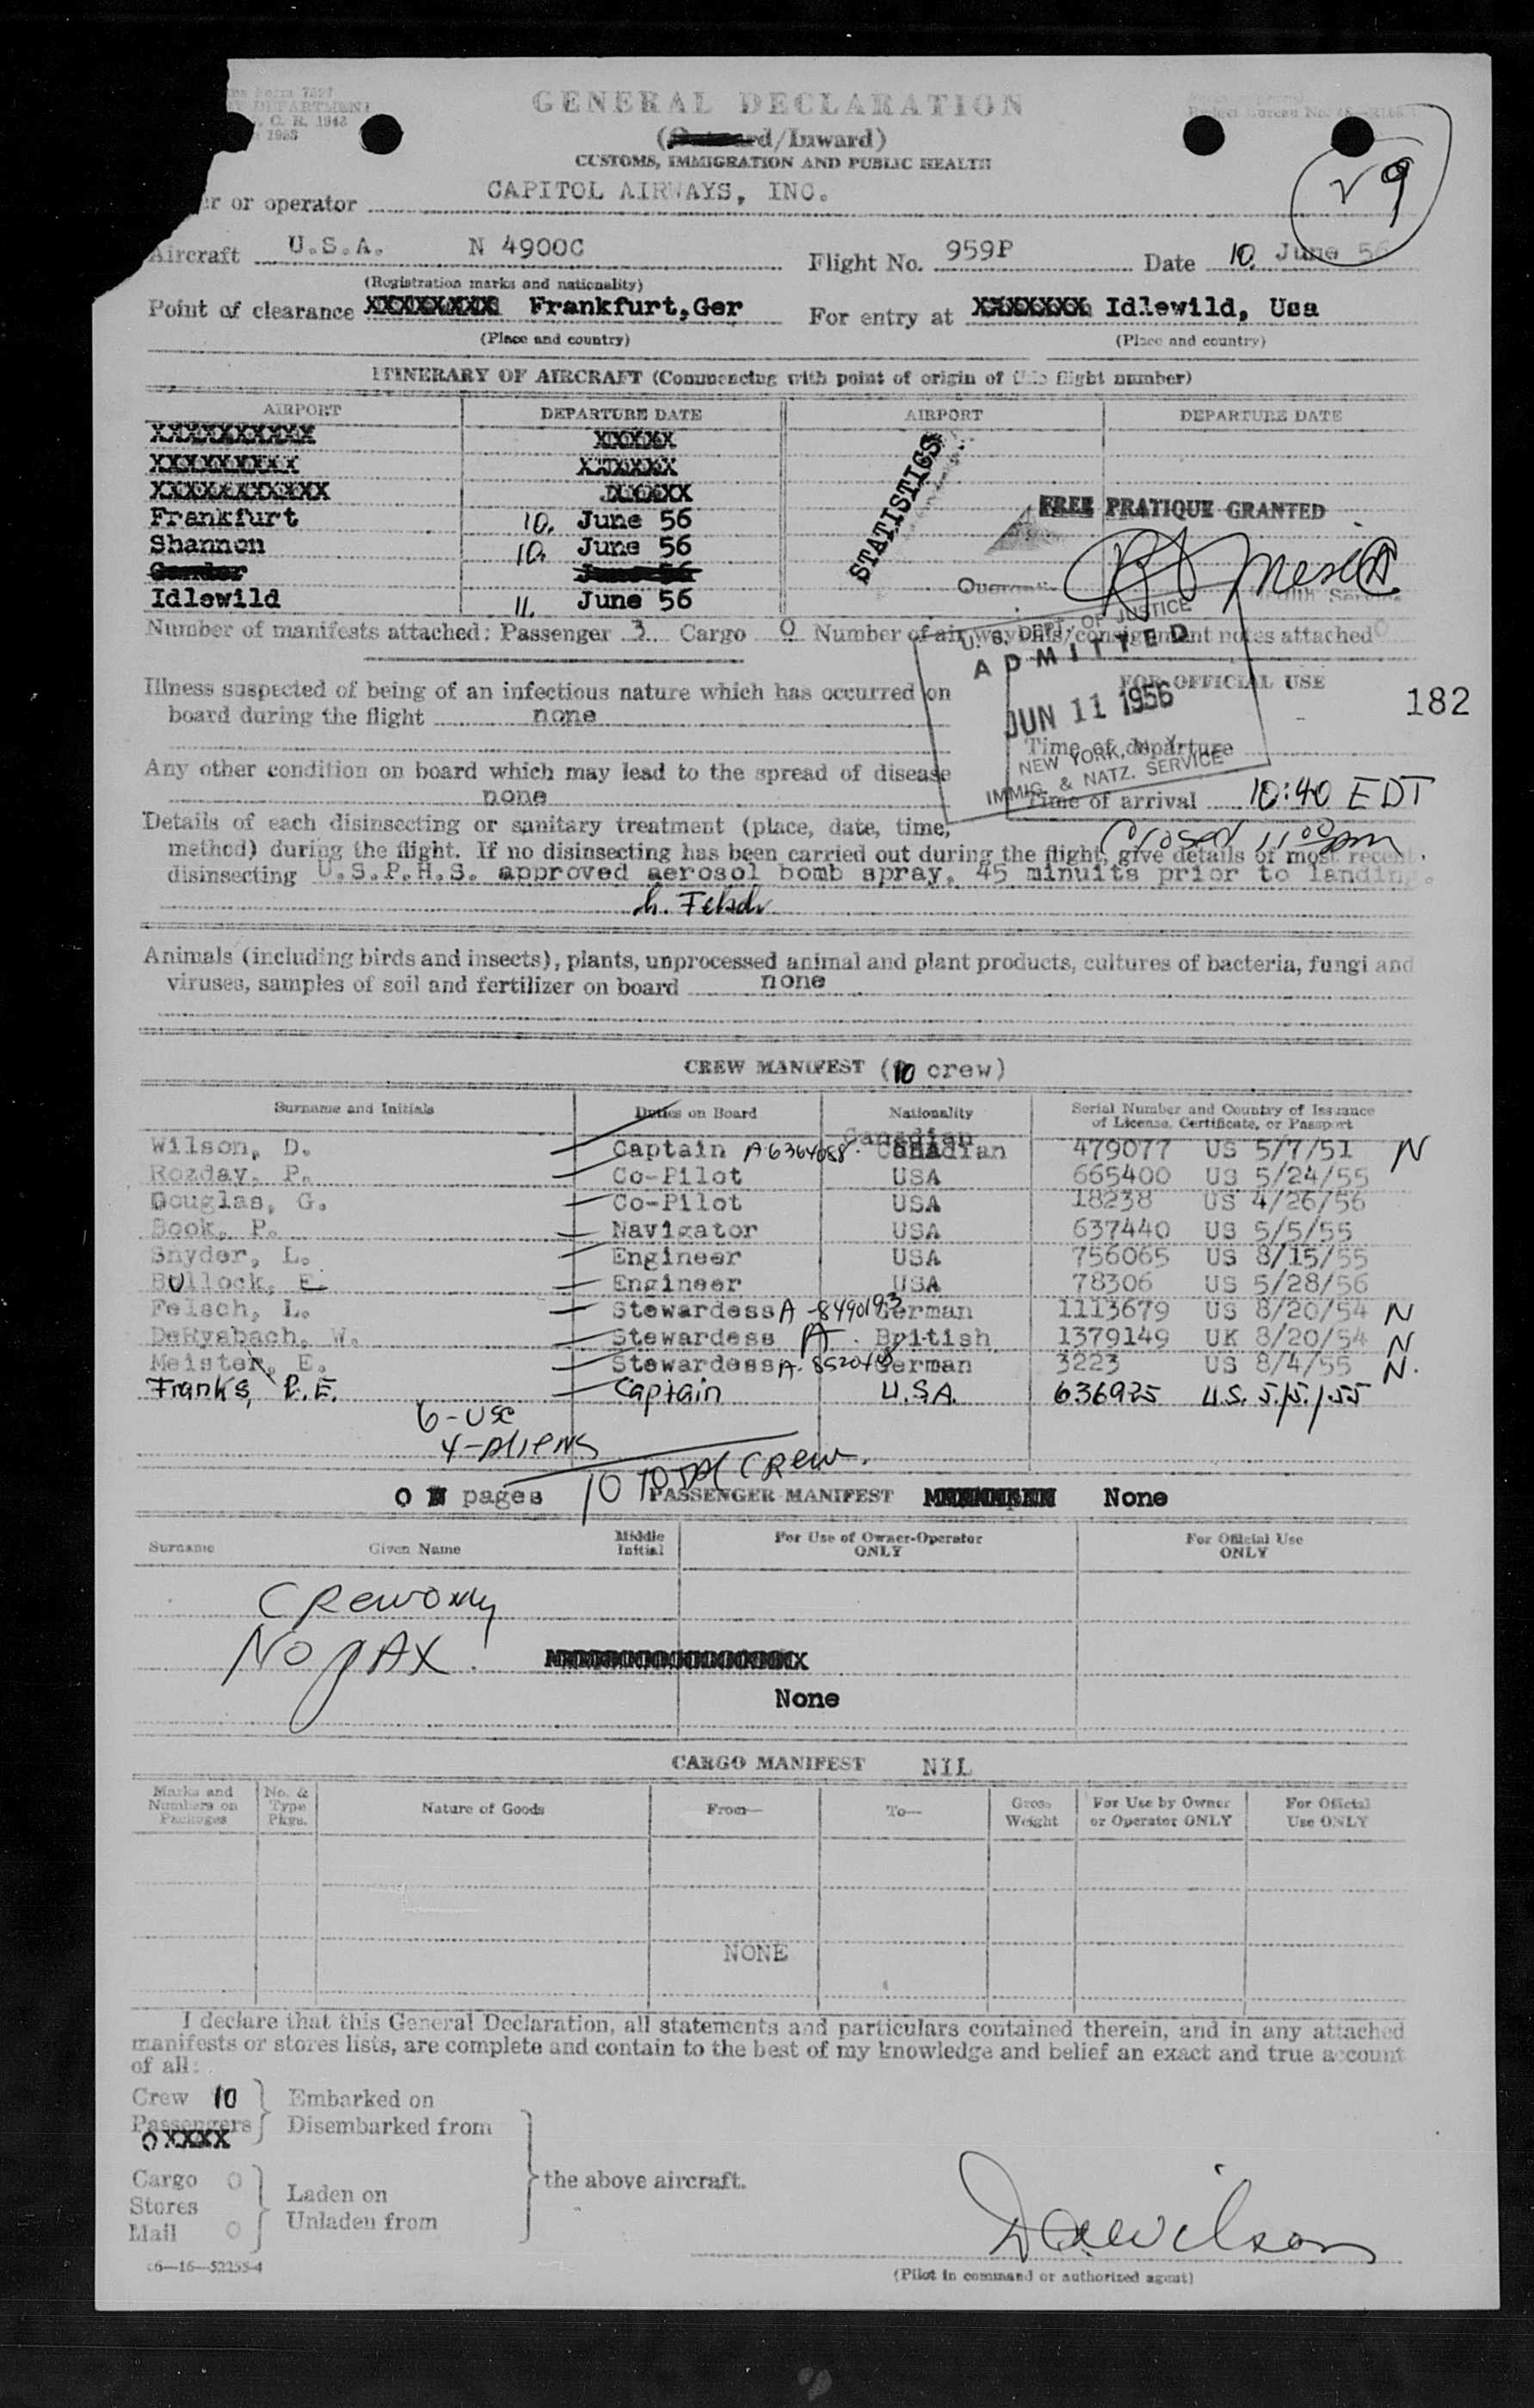 Form 7507
DEPARTMENT
C. R. 1943
1955
GENERAL DECLARATION
d/Inward)
CUSTOMS, IMMIGRATION AND PUBLIC HEALTH
29
er or operator CAPITOL AIRWAYS, INC.
Aircraft U.S.A. N 4900C Flight No. 959P Date 10. June 56
(Registration marks and nationality)
Point of clearance XXXXXXXXX Frankfurt,Ger For entry at XXXXXXXX Idlewild, Usa
(Place and country) (Place and country)
ITINERARY OF AIRCRAFT (Commencing with point of origin of this flight number)
AIRPORT DEPARTURE DATE AIRPORT DEPARTURE DATE
XXXXXXXXXXX XXXXXX
XXXXXXXXXX XXXXXXX
XXXXXXXXXXXX XXXXXX
Frankfurt 10. June 56
Shannon 10. June 56
Gander June 56
Idlewild 11. June 56
STATISTICS
FREE PRATIQUE GRANTED
Number of manifests attached: Passenger 3 Cargo 0 Number of air waybills/consignment notes attached 0
U. S. DEPT. OF JUSTICE
ADMITTED
JUN 11 1956
NEW YORK, N. Y.
IMMIG. & NATZ. SERVICE
Illness suspected of being of an infectious nature which has occurred on
board during the flight none
FOR OFFICIAL USE
182
Time of departure
Any other condition on board which may lead to the spread of disease
none
Time of arrival 10:40 EDT
Closed 11 00 pm
Details of each disinsecting or sanitary treatment (place, date, time,
method) during the flight. If no disinsecting has been carried out during the flight, give details of most recent
disinsecting U.S.P.H.S. approved aerosol bomb spray, 45 minuits prior to landing.
L. Felsch
Animals (including birds and insects), plants, unprocessed animal and plant products, cultures of bacteria, fungi and
viruses, samples of soil and fertilizer on board none
CREW MANIFEST (10 crew)
Surname and Initials Duties on Board Nationality Serial Number and Country of Issuance
of License, Certificate, or Passport
Wilson, D. Captain A6364088 Canadian 479077 US 5/7/51 N
Rozday, P. Co-Pilot USA 665400 US 5/24/55
Douglas, G. Co-Pilot USA 18238 US 4/26/56
Book, P. Navigator USA 637440 US 5/5/55
Snyder, L. Engineer USA 756065 US 8/15/55
Bullock, E. Engineer USA 78306 US 5/28/56
Felsch, L. Stewardess A-8490193 German 1113679 US 8/20/54 N
DeRysbach, W. Stewardess A British 1379149 UK 8/20/54 N
Meister, E. Stewardess A-852048 German 3223 US 8/4/55 N.
Franks, R.E. Captain U.S.A. 636925 U.S. 5/5/55
6-USC
4-Aliens
10 Total Crew.
0 pages PASSENGER MANIFEST None
Surname Given Name Middle Initial For Use of Owner-Operator ONLY For Official Use ONLY
Crew only
No pax.
None
CARGO MANIFEST NIL
Marks and Numbers on Packages No. & Type Pkgs. Nature of Goods From— To— Gross Weight For Use by Owner or Operator ONLY For Official Use ONLY
NONE
I declare that this General Declaration, all statements and particulars contained therein, and in any attached
manifests or stores lists, are complete and contain to the best of my knowledge and belief an exact and true account
of all:
Crew 10 Embarked on
Passengers Disembarked from
0 XXXX
the above aircraft.
Cargo 0 Laden on
Stores
Mail 0 Unladen from
DWilson
16—16—52255-4
(Pilot in command or authorized agent)